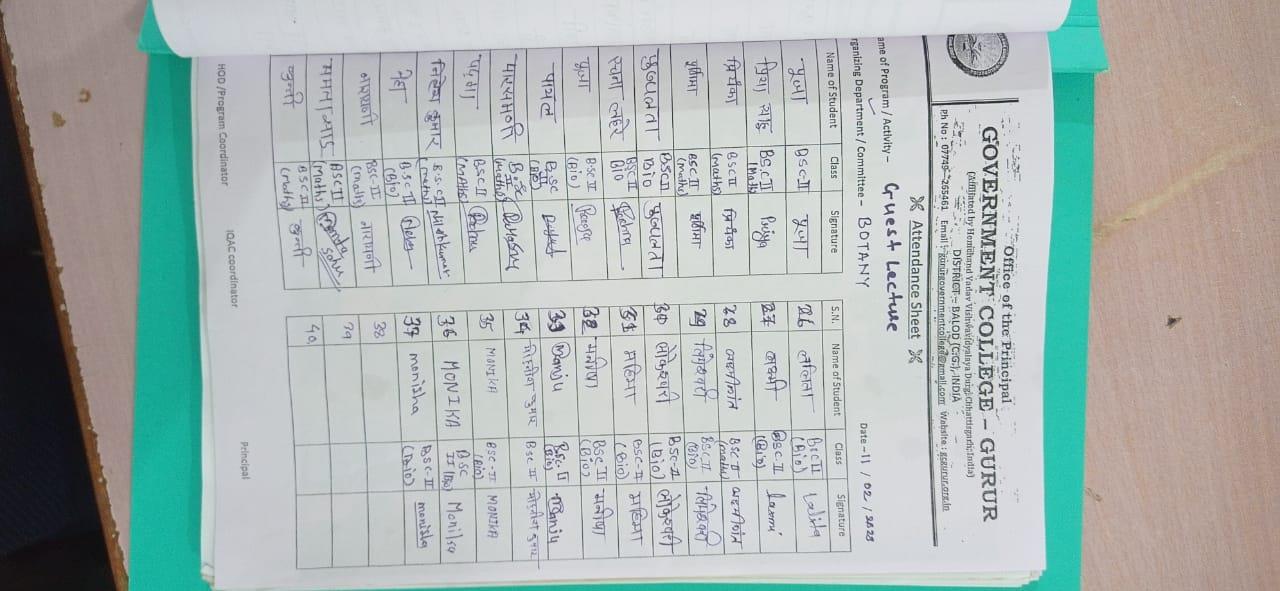 Office of the Principal
GOVERNMENT COLLEGE – GURUR
(Affiliated by Hemchand Yadav Vishwavidyalaya Durg, Chhattisgarh, India)
DISTRICT – BALOD (C.G.), INDIA
Ph No : 07749 – 265461 Email : gururgovernmentcollege@gmail.com Website : gcgurur.org.in
Attendance Sheet
ame of Program / Activity – Guest Lecture
rganizing Department / Committee – BOTANY Date – 11 / 02 / 2025
Name of Student Class Signature
पूजा BSC-II पूजा
प्रिया साहू BSC II (Maths) Priya
प्रियंका BSC II (maths) प्रियंका
पूर्णिमा BSC II (maths) पूर्णिमा
फुलबता BSC-II Bio फुलबता
रचना BSC-II Bio
पूजा B.SC II (Bio)
पायल B.SC II (Bio)
पारसमणी B.SC II (maths)
पदमा BSC-II (maths)
निलेश कुमार B.SC II (maths)
नेहा B.SC II (Bio)
BSC-II (maths)
BSC II (maths)
BSC II (maths)
S.N. Name of Student Class Signature
26 ललिता BSC II (Bio) Lalita
27 लक्ष्मी BSC-II (Bio) laxmi
28 BSC II (maths)
29 BSC-II (Bio)
30 लोकेश्वरी BSC-II (Bio) लोकेश्वरी
31 महिमा BSC-II (Bio) महिमा
32 मनीषा BSC II (Bio) मनीषा
33 Manju BSC II (Bio) Manju
34 कुमार BSC-II कुमार
35 MONIKA BSC-II (Bio) MONIKA
36 MONIKA BSC II (Bio) Monika
37 monisha BSC-II (Bio) monisha
38
39
40
HOD /Program Coordinator IQAC coordinator Principal